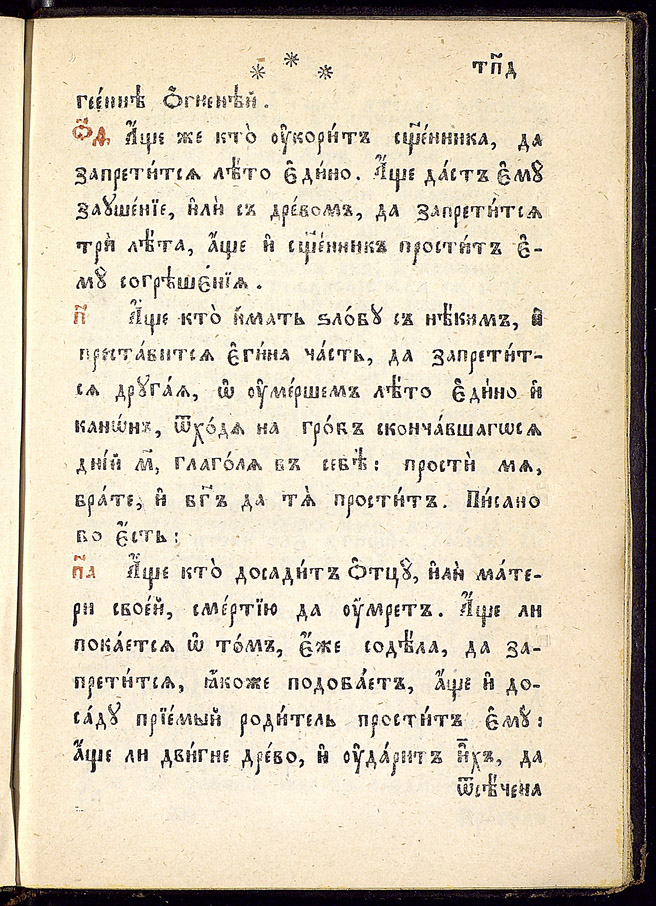 * * *
тп҃д
геéннѣ ѻ҆́гненѣй .
ѻ҃д А҆́ще же кто̀ ᲂу҆кори́тъ сщ҃е́нника, да
запрети́тся лѣ́то є҆ди́но. А҆́ще да́стъ є҆мꙋ̀
заꙋше́нїе, и҆лѝ съ дре́вомъ, да запрети́тся
трѝ лѣ́та, а҆́ще и҆ сщ҃е́нникъ прости́тъ є҆-
мꙋ̀ согрѣше́нїя .
п҃ А҆́ще кто̀ и҆́мать ѕло́бꙋ съ нѣ́кимъ, и҆
преста́вится є҆ди́на ча́сть, да запрети́т-
ся дрꙋга́я, ѡ҆ ᲂу҆ме́ршемъ лѣ́то є҆ди́но и҆
канѡ́нъ, ѿхо́дя на гро́бъ сконча́вшагѡся
дні́й м҃, глаго́ля въ себѣ̀: простѝ мя,
бра́те, и҆ бг҃ъ да тя̀ прости́тъ. Пи́сано
бо є҆́сть:
п҃а А҆́ще кто̀ досади́тъ ѻ҆тцꙋ̀, и҆лѝ ма́те-
ри свое́й, сме́ртїю да ᲂу҆́мретъ. А҆́ще ли
пока́ется ѡ҆ то́мъ, є҆́же содѣ́ла, да за-
прети́тся, ꙗ҆́коже подоба́етъ, а҆́ще и҆ до-
са́дꙋ прїе́мый роди́тель прости́тъ є҆мꙋ̀:
а҆́ще ли дви́гне дре́во, и҆ ᲂу҆да́ритъ и҆̀хъ, да
ѿсѣ́чена